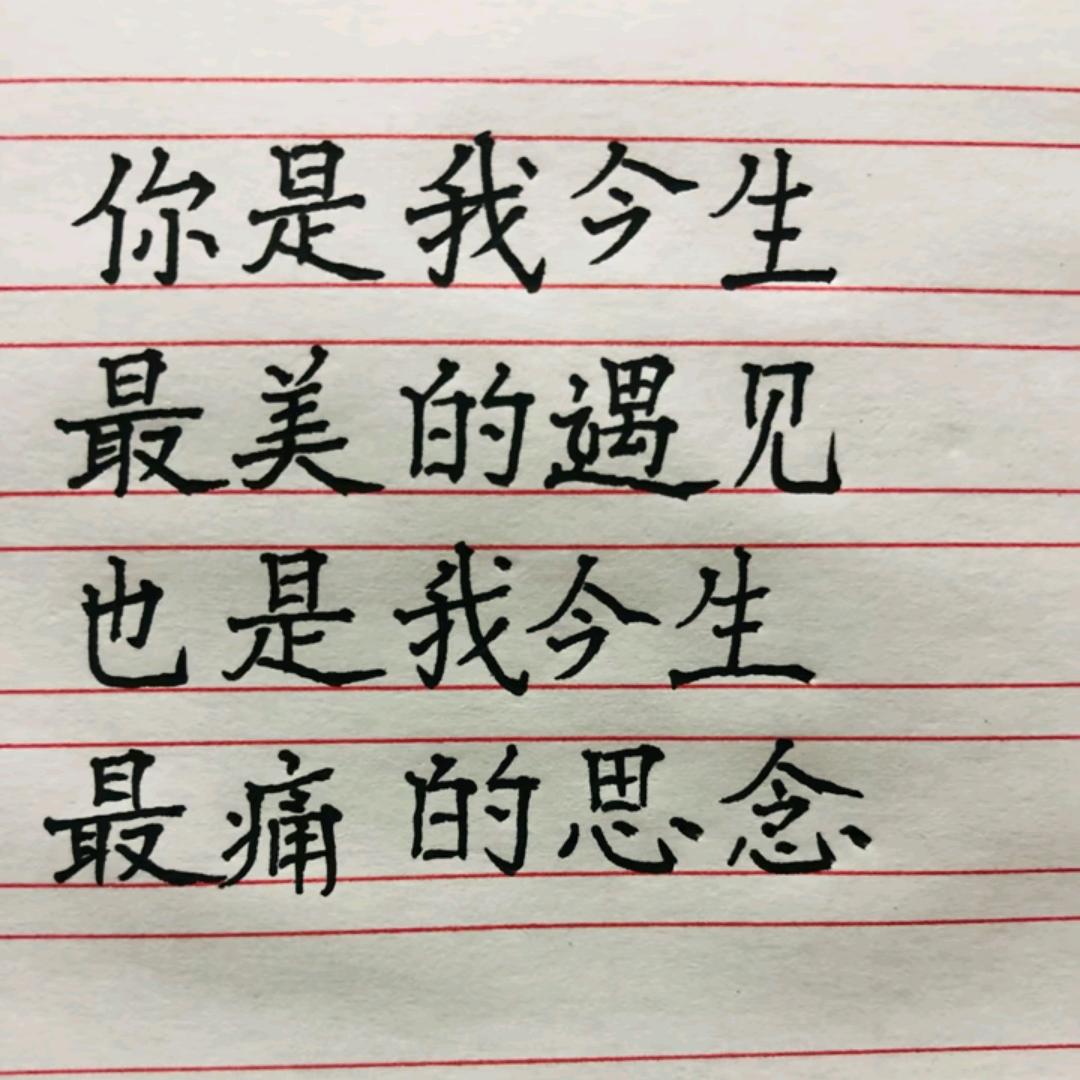 你是我今生
最美的遇见
也是我今生
最痛的思念